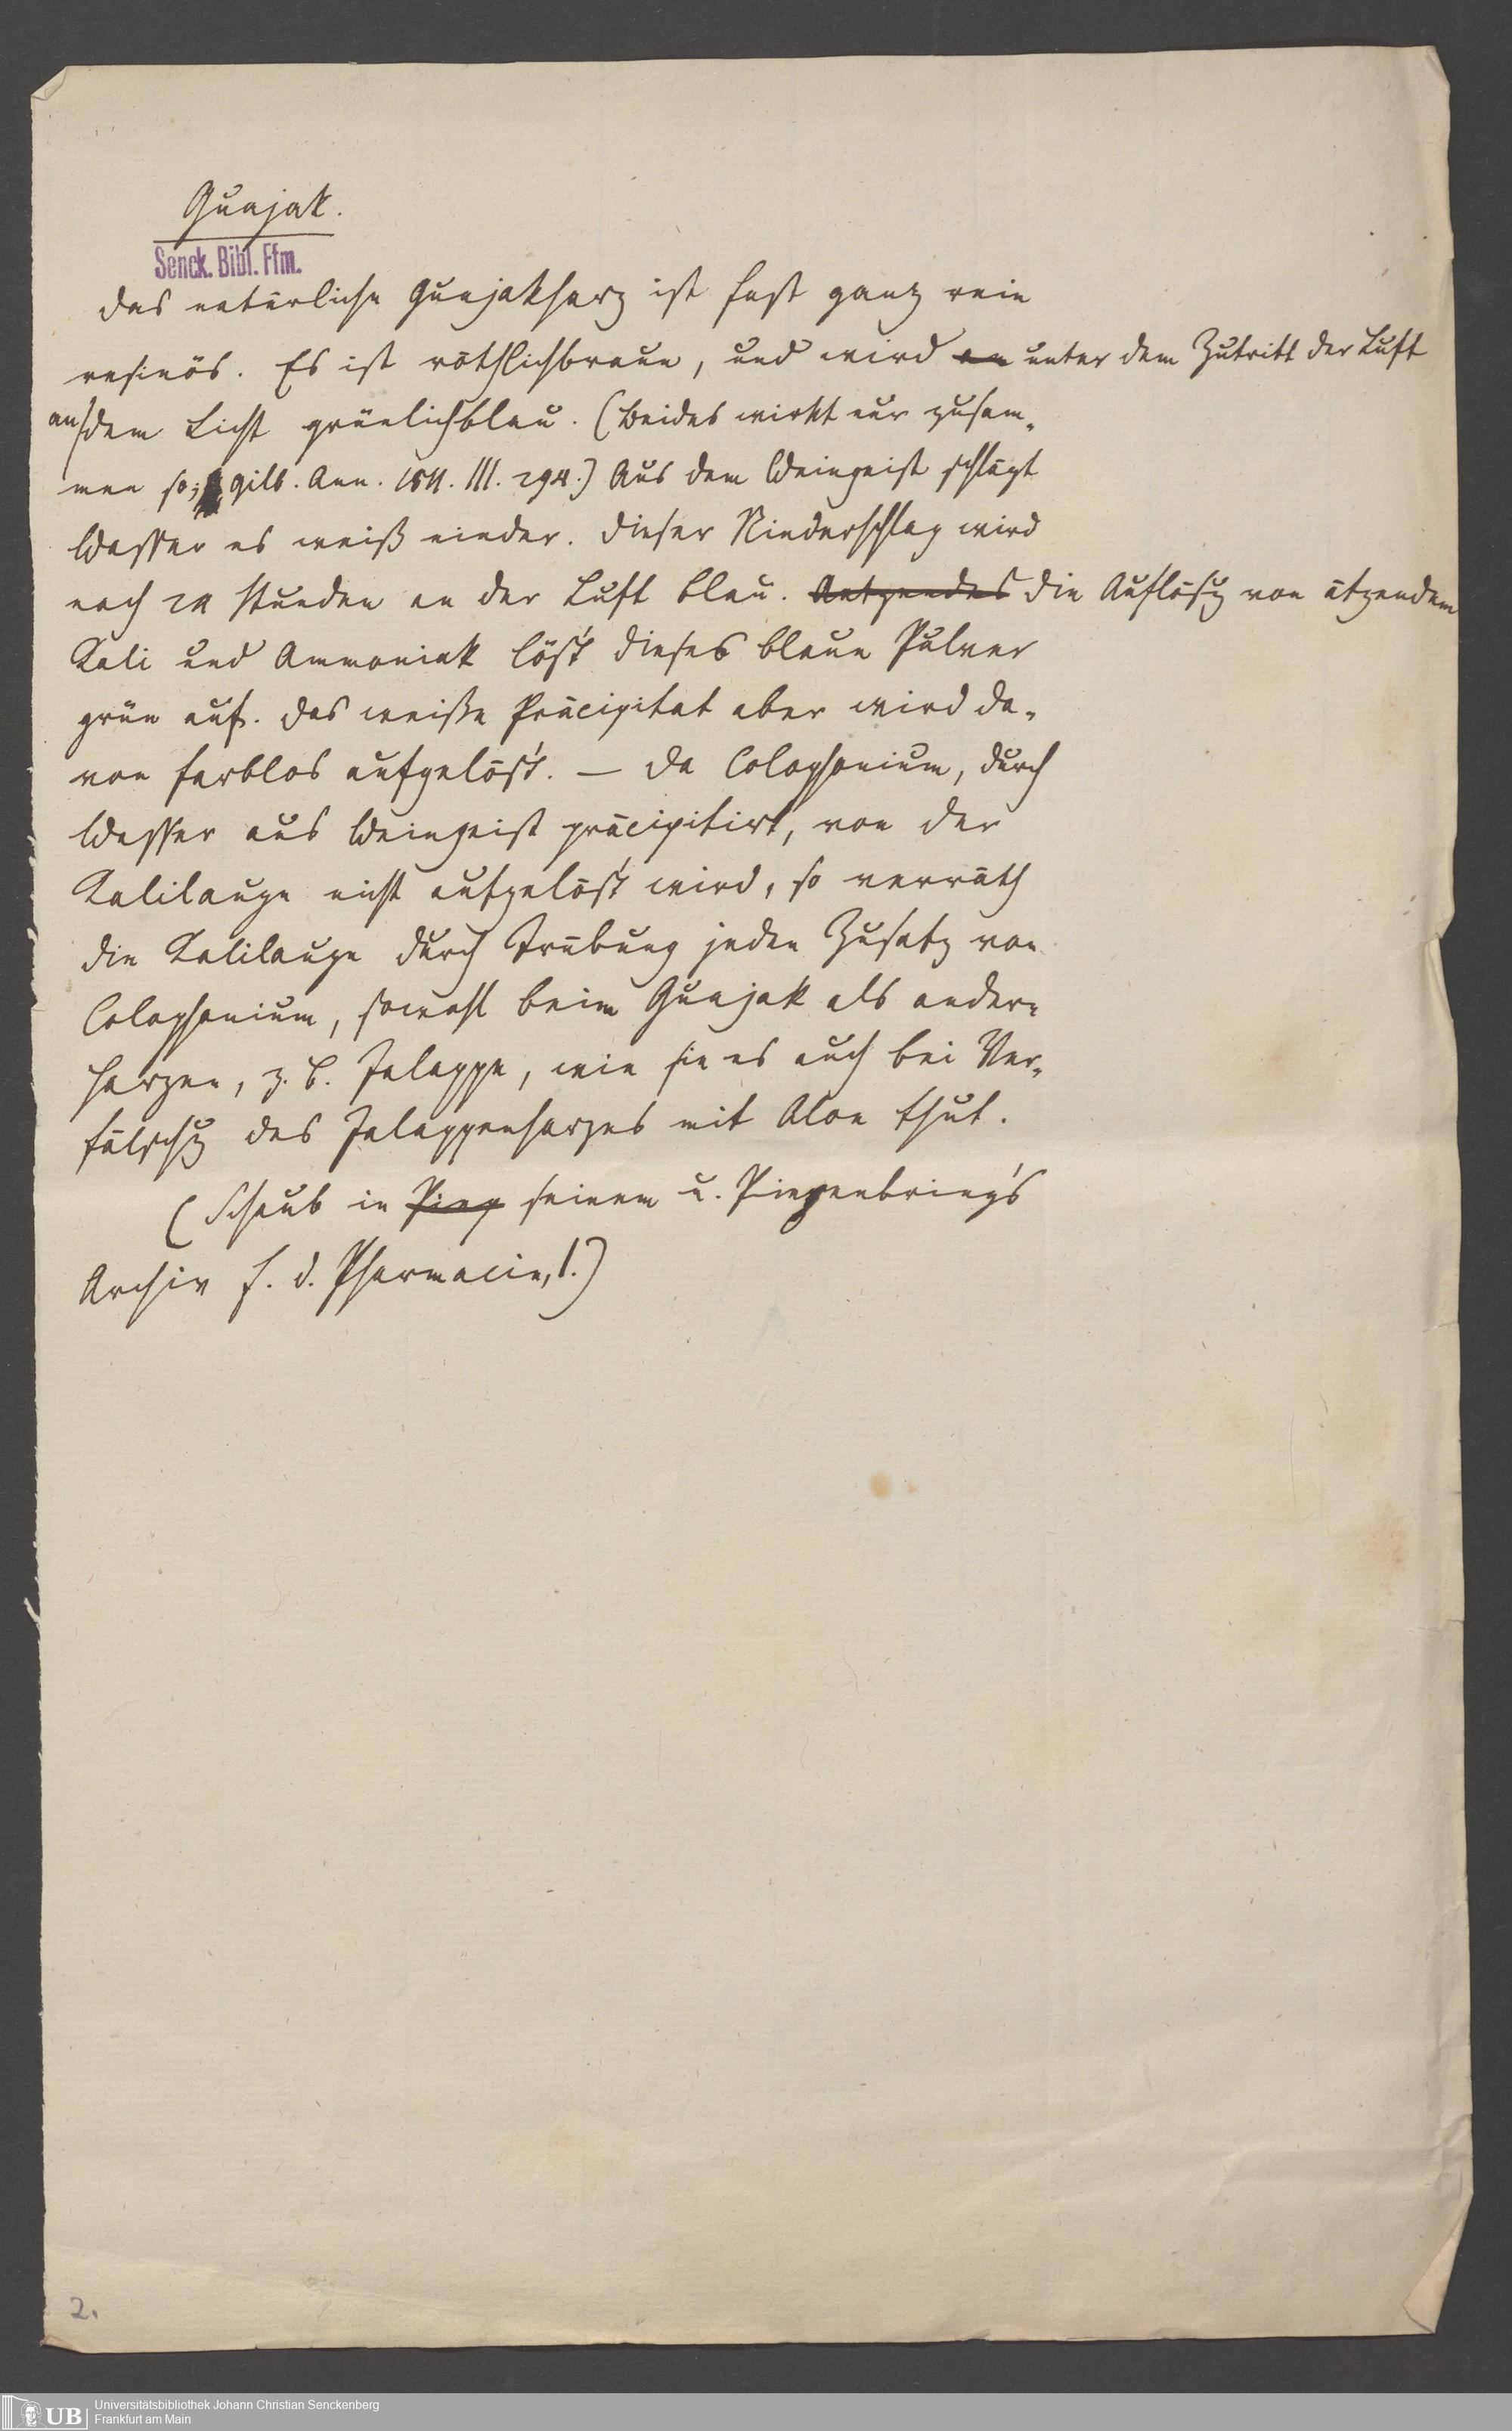 Guajak.
Senck. Bibl. Ffm.
Das natürliche Guajakharz ist fast ganz rein
resinös. Es ist röthlichbraun, und wird an unter dem Zutritt der Luft
an dem Licht grünlichblau. (Beides wirkt nur zusam-
men so; Gilb. Ann. 1811. III. 294.) Aus dem Weingeist schlägt
Wasser es weiß nieder. Dieser Niederschlag wird
nach 24 Stunden an der Luft blau. Aetzendes Die Auflösg von ätzendem
Kali und Ammoniak löst dieses blaue Pulver
grün auf. Das weiße Präcipitat aber wird da-
von farblos aufgelöst. — Da Colophonium, durch
Wasser aus Weingeist präcipitirt, von der
Kalilauge nicht aufgelöst wird, so verräth
die Kalilauge durch Trübung jeden Zusatz von
Colophonium, sowohl beim Guajak als andern
Harzen, z. B. Jalappe, wie sie es auch bei Ver-
fälschg des Jalappenharzes mit Aloe thut.
(Schaub in Piep seinem u. Piepenbring's
Archiv f. d. Pharmacie, I.)
2.
UB
Universitätsbibliothek Johann Christian Senckenberg
Frankfurt am Main